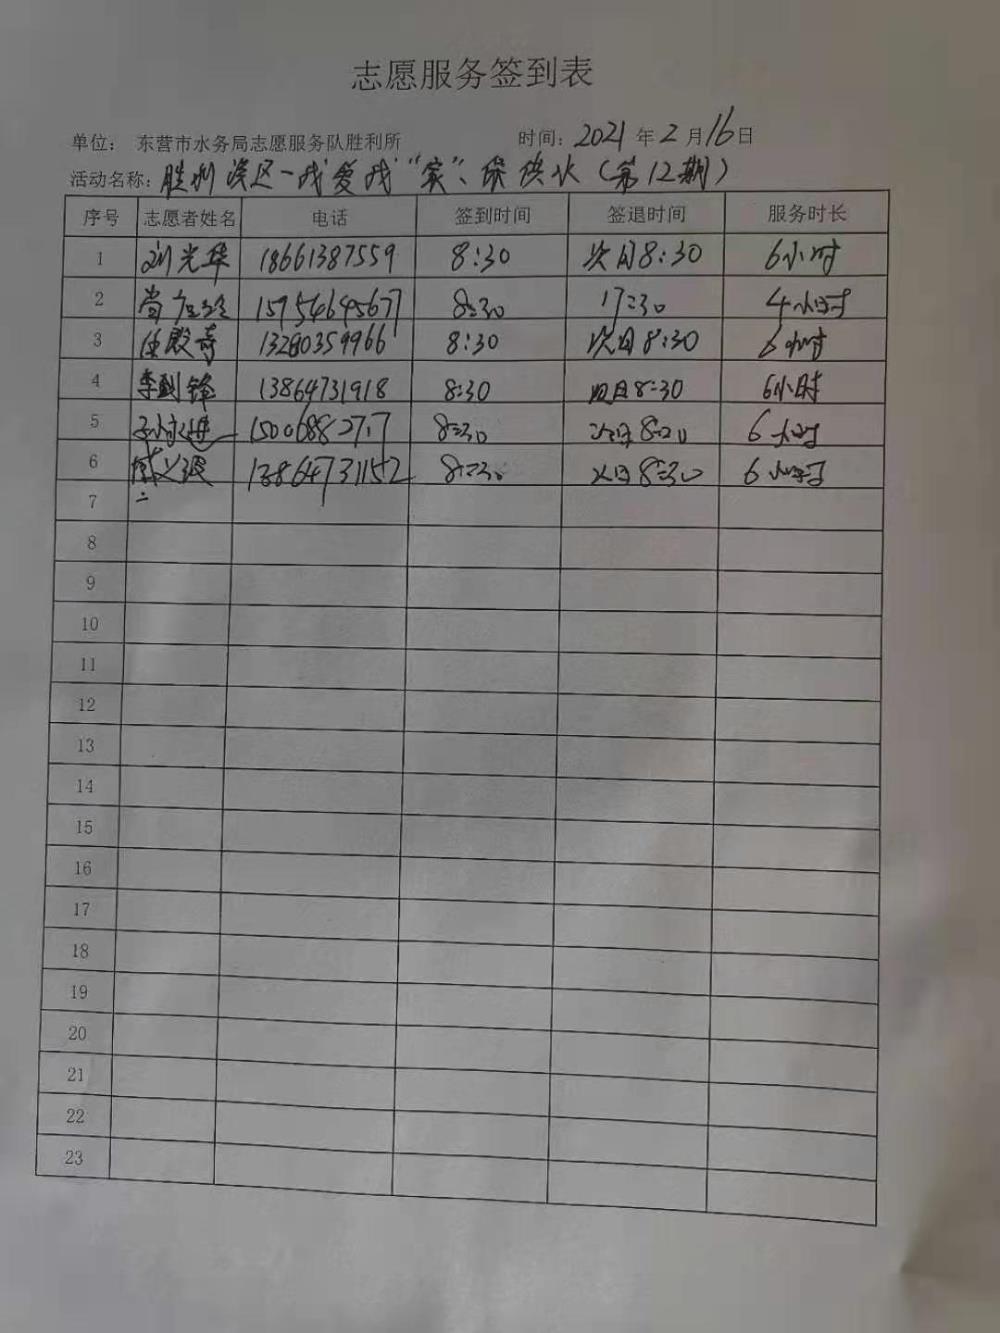 志愿服务签到表
单位： 东营市水务局志愿服务队胜利所 时间：2021 年 2 月 16 日
活动名称：胜利 区－我爱我“家”、保供水（第12期）
序号 志愿者姓名 电话 签到时间 签退时间 服务时长
1 刘光华 18661387559 8:30 次日8:30 6小时
2 8:30 17:30 4小时
3 任殿奇 13280359966 8:30 次日8:30 6小时
4 李剑锋 13864731918 8:30 8:30 6小时
5 8:30 次日 6小时
6 13864731152 8:30 次日8:30 6小时
7
8
9
10
11
12
13
14
15
16
17
18
19
20
21
22
23